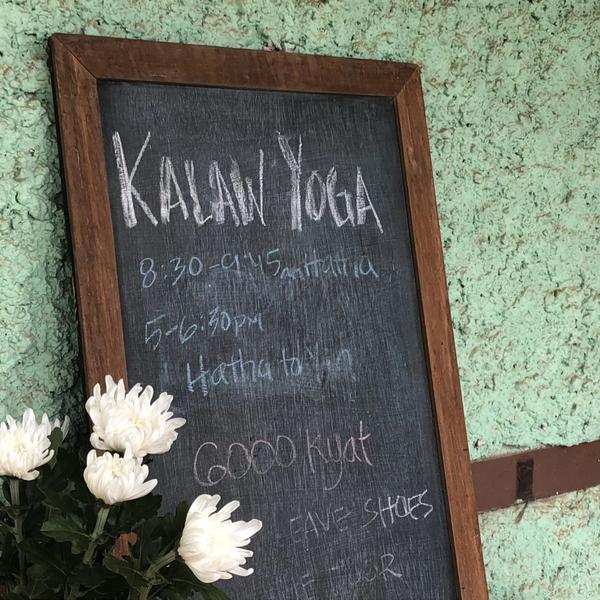 KALAW YOGA
8:30-9:45am Hatha
5-6:30pm
Hatha to Yin
6000 Kyat
EAVE SHOES